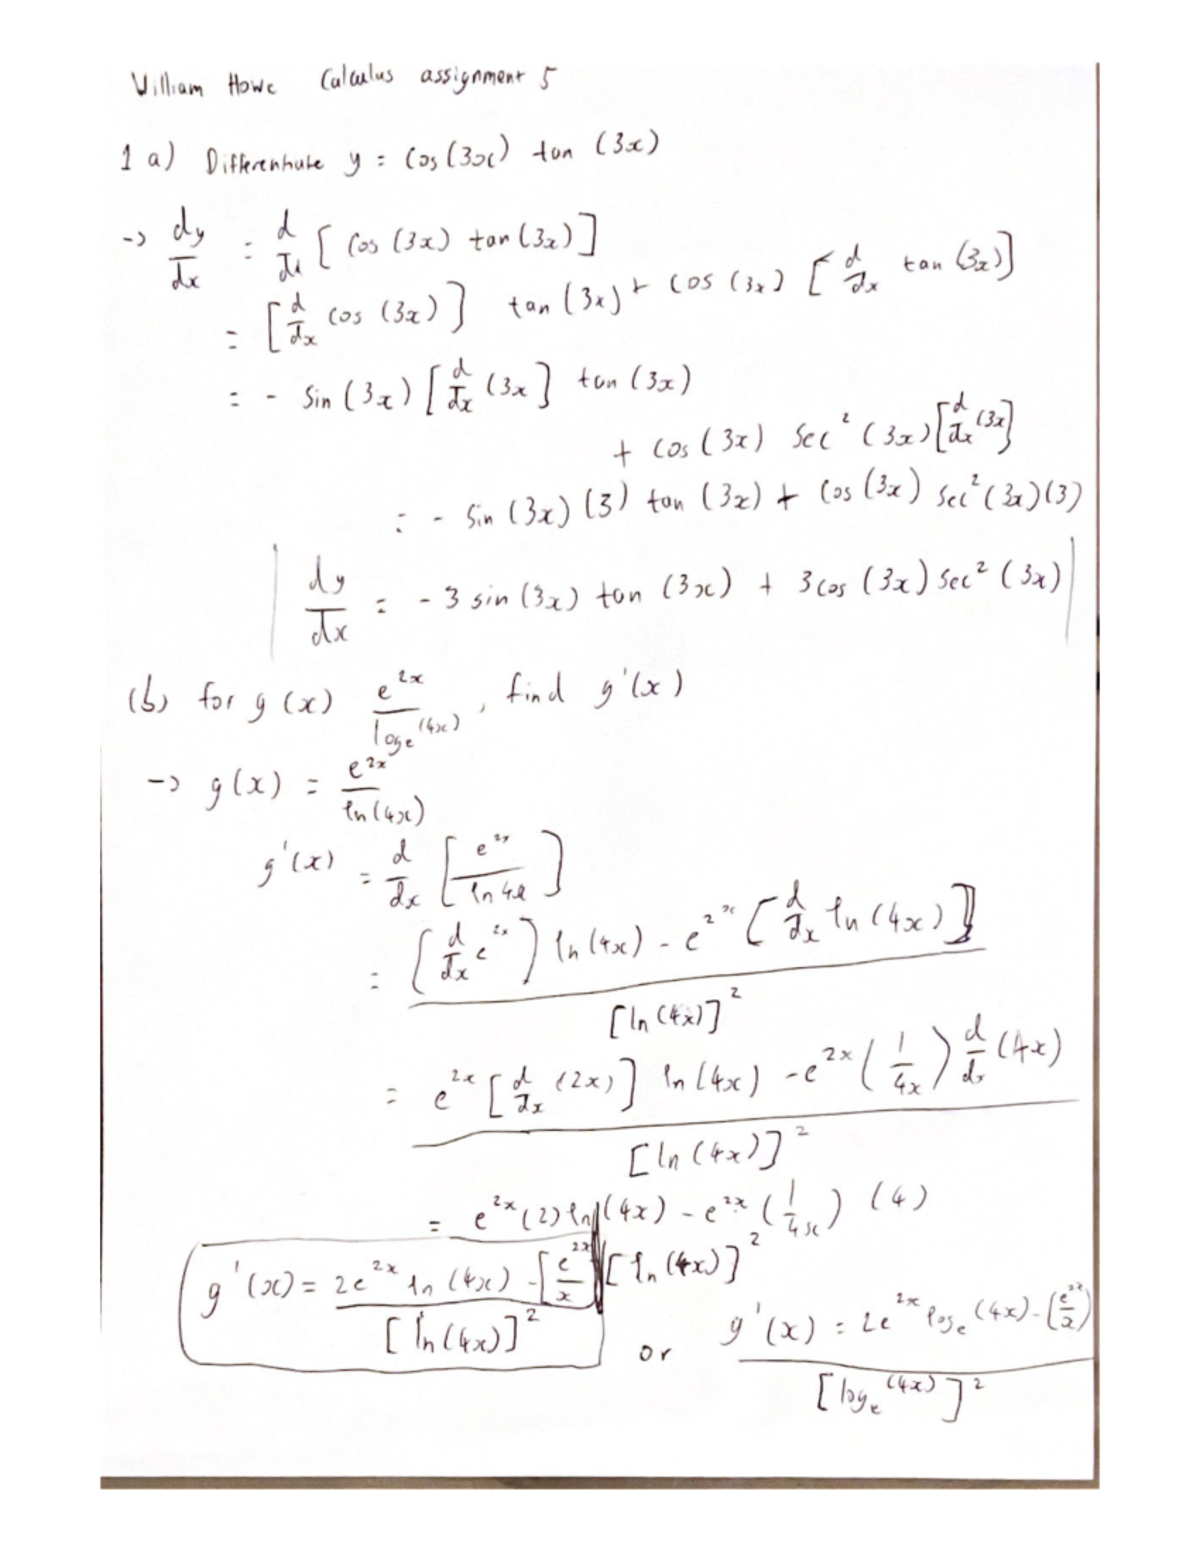 William Howe Calculus assignment 5
1 a) Differentiate y = cos(3x) tan (3x)
-> dy/dx = d/dx [ cos (3x) tan (3x)]
= [d/dx cos (3x)] tan (3x) + cos (3x) [ d/dx tan (3x)]
= - sin (3x) [d/dx (3x] tan (3x)
+ cos (3x) sec² (3x)[d/dx (3x]
= - sin (3x) (3) tan (3x) + cos (3x) sec² (3x)(3)
dy/dx = - 3 sin (3x) tan (3x) + 3 cos (3x) sec² (3x)
(b) for g (x) e^2x / log_e (4x) , find g'(x)
-> g(x) = e^2x / ln(4x)
g'(x) = d/dx [e^2x / ln 4x]
= (d/dx e^2x) ln (4x) - e^2x [d/dx ln (4x)] / [ln (4x)]²
= e^2x [d/dx (2x)] ln (4x) - e^2x (1/4x) d/dx (4x) / [ln (4x)]²
= e^2x (2) ln (4x) - e^2x (1/4x) (4) / [ln (4x)]²
g'(x) = 2e^2x ln (4x) - [e^2x/x] / [ln(4x)]²
or g'(x) = 2e^2x log_e (4x) - (e^2x/x) / [log_e (4x)]²